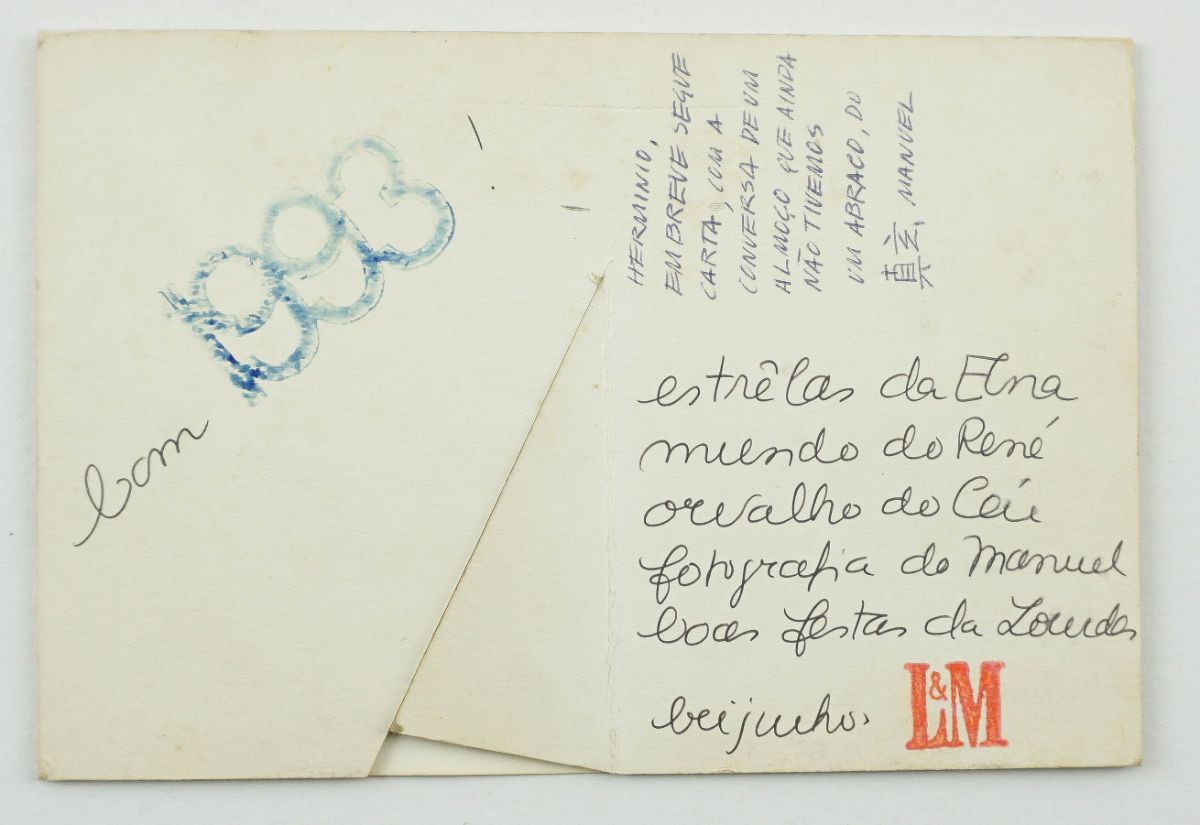 bom
1993
HERMINIO,
EM BREVE SEGUE
CARTA, COM A
CONVERSA DE UM
ALMOÇO QUE AINDA
NÃO TIVEMOS
UM ABRAÇO, DO
MANUEL
estrêlas da Elna
mundo do René
orvalho do Céu
fotografia do Manuel
boas festas da Lourdes
beijinhos
L&M